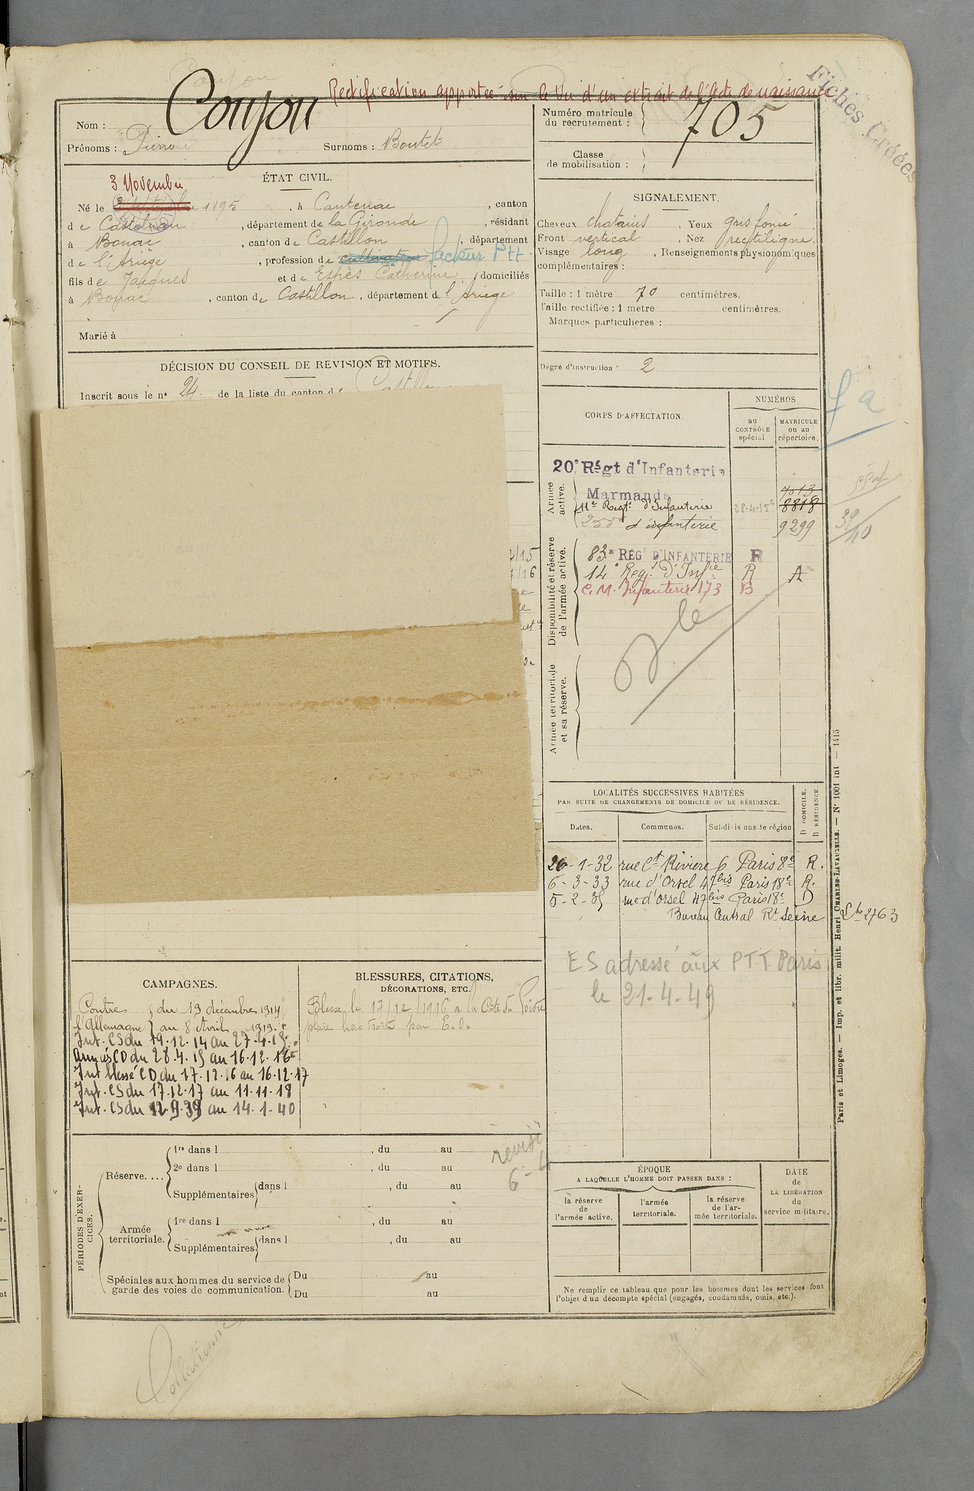 Rectification apportée sur le Vu d'un extrait de l'Acte de naissance
Fiches Créées
Nom : Coujou
Prénoms : Pierre Surnoms : Boutet
Numéro matricule du recrutement : 705
Classe de mobilisation :
ÉTAT CIVIL.
3 Novembre
Né le 1895, à Cantenac, canton
de Castelnau, département de la Gironde, résidant
à Bonac, canton de Castillon, département
de l'Ariège, profession de cultivateur facteur PTT.
fils de Jacques et de Espès Catherine, domiciliés
à Bonac, canton de Castillon, département de l'Ariège
Marié à
SIGNALEMENT.
Cheveux chatains. Yeux gris foncé
Front vertical. Nez rectiligne.
Visage long. Renseignements physionomiques
complémentaires :
Taille : 1 mètre 70 centimètres.
Taille rectifiée : 1 mètre centimètres.
Marques particulières :
Degré d'instruction : 2
DÉCISION DU CONSEIL DE REVISION ET MOTIFS.
Inscrit sous le n° 24. de la liste du canton de
CORPS D'AFFECTATION.
NUMÉROS
au CONTRÔLE spécial
MATRICULE ou au répertoire.
Armée active.
20e Régt d'Infanterie
Marmande
7013
11e Régt d'Infanterie 28-4-15 8818
255e d'infanterie 9299
Disponibilité et réserve de l'armée active.
83e RÉGt D'INFANTERIE R
14e Régt d'Infie R A
C.M. Infanterie 173 B
Armée territoriale et sa réserve.
39
40
LOCALITÉS SUCCESSIVES HABITÉES
PAR SUITE DE CHANGEMENTS DE DOMICILE OU DE RÉSIDENCE.
Dates. Communes. Subdivisions de région
D DOMICILE. R RÉSIDENCE.
26-1-32 rue Ct Rivière 6 Paris 8e R.
6-3-33 rue d'Orsel 47bis Paris 18e R.
5-2-35 rue d'Orsel 47bis Paris 18e D
Bureau Central Rt Seine
2763
ES adressé aux PTT Paris
le 21-4-49
CAMPAGNES.
Contre l'Allemagne du 19 décembre 1914
au 8 Avril 1919.
Int. CS du 19.12.14 au 27.4.15
Armées CD du 28.4.15 au 16.12.16
Int blessé CD du 17.12.16 au 16.12.17
Int. CS du 17.12.17 au 11.11.18
Int. CS du 12.9.39 au 14.1.40
BLESSURES, CITATIONS, DÉCORATIONS, ETC.
Blessé le 17/12/1916 à la Côte du Poivre
plaie bras droit par E.O.
PÉRIODES D'EXERCICES.
Réserve....
1re dans l , du au
2e dans l , du au
Supplémentaires dans l , du au
Armée territoriale.
1re dans l , du au
Supplémentaires dans l , du au
Spéciales aux hommes du service de garde des voies de communication.
Du au
Du au
revisé
ÉPOQUE
A LAQUELLE L'HOMME DOIT PASSER DANS :
la réserve de l'armée active.
l'armée territoriale.
la réserve de l'armée territoriale.
DATE de LA LIBÉRATION du service militaire.
Ne remplir ce tableau que pour les hommes dont les services font
l'objet d'un décompte spécial (engagés, condamnés, omis, etc.).
Collationné
Paris et Limoges. — Imp. et libr. milit. Henri CHARLES-LAVAUZELLE. — N° 1001 int — 1413